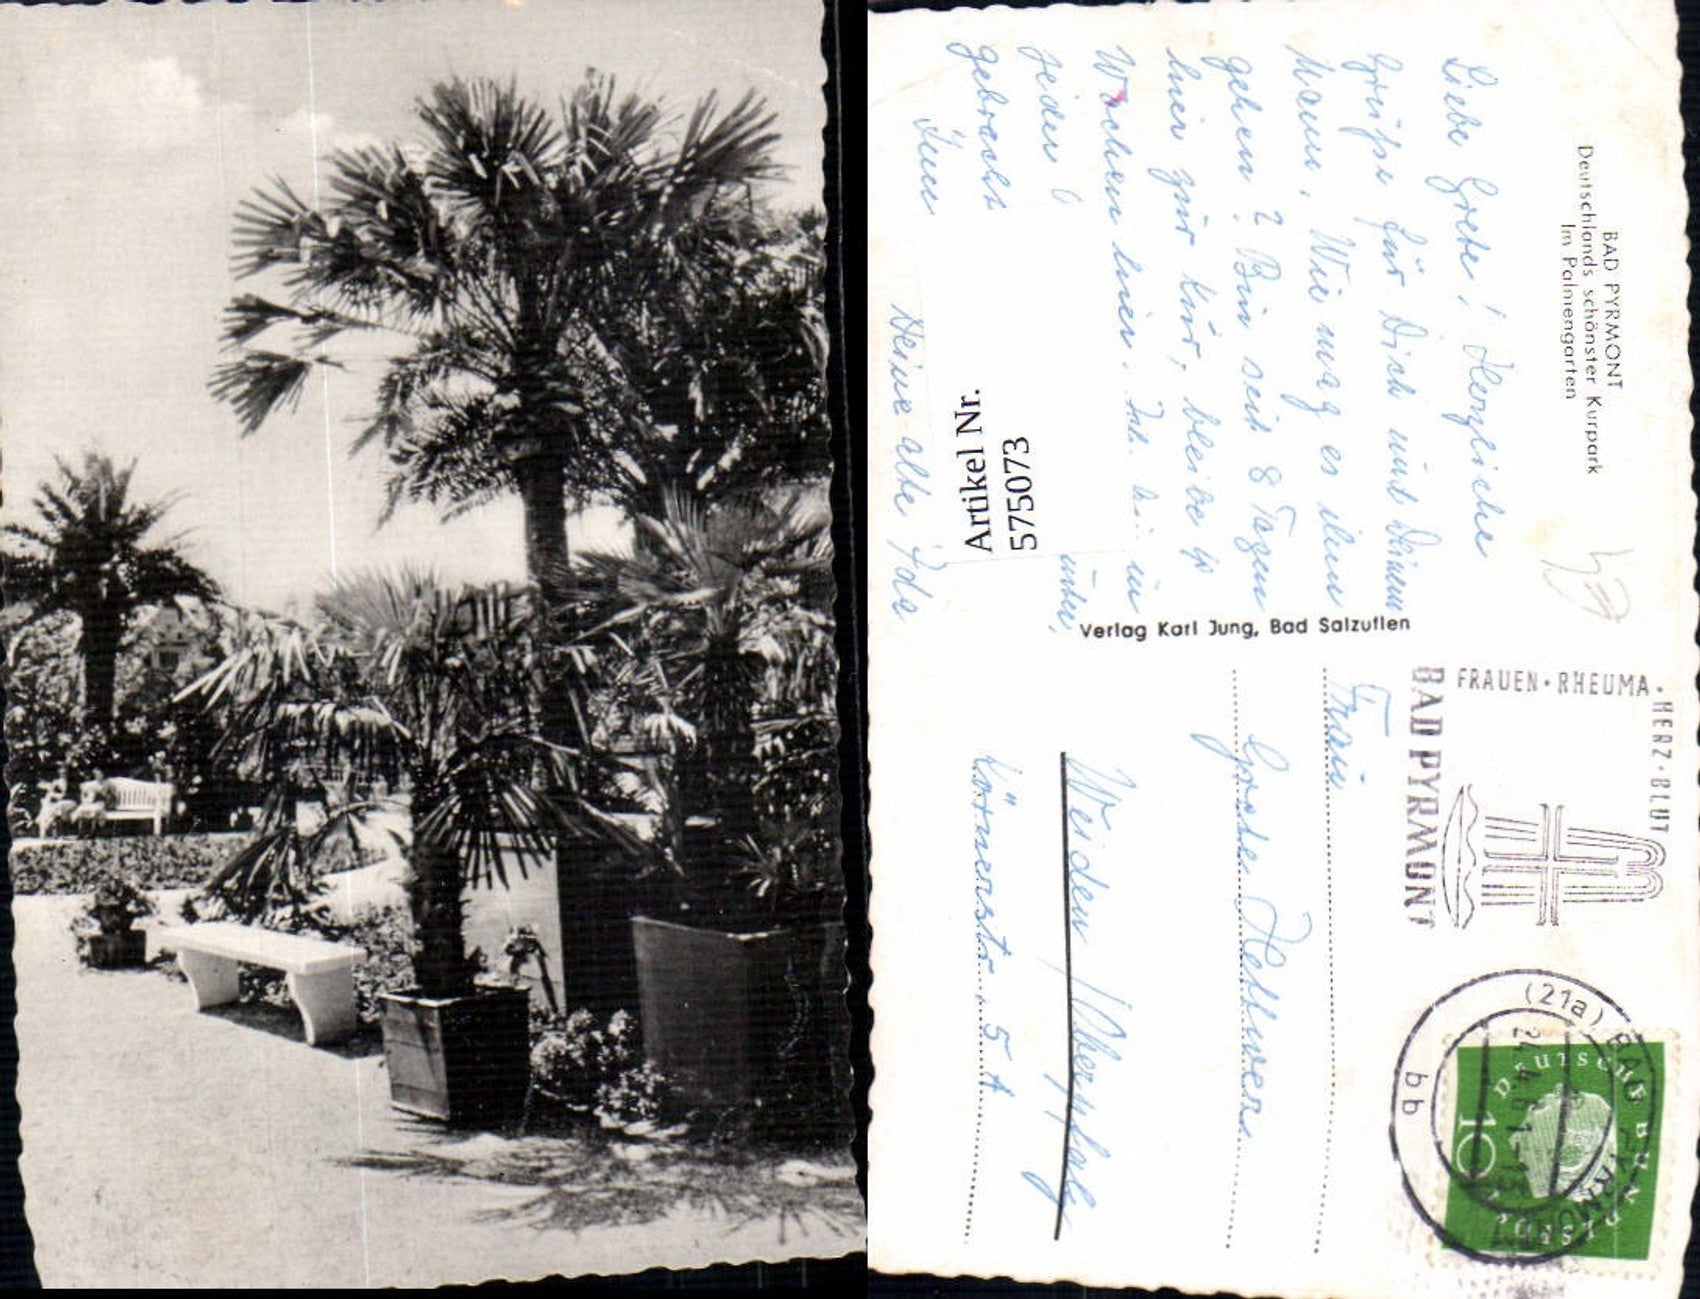 BAD PYRMONT
Deutschlands schönster Kurpark
Im Palmengarten
Liebe Grete! Herzliche
Grüße für Dich und Deinen
Mann. Wie mag es ihm
gehen? Bin seit 8 Tagen
hier zur Kur, bleibe 4
Wochen hier. in
jeder
gebracht
Deine alte Ida
Artikel Nr.
575073
Verlag Karl Jung, Bad Salzuflen
FRAUEN · RHEUMA · HERZ · BLUT
BAD PYRMONT
(21a) BAD PYRMONT
bb
DEUTSCHE BUNDESPOST
10
Frau
Grete
Weiden / Oberpfalz
Körnerstr. 5A